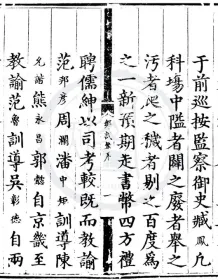 于前巡按監察御史臧鳳凡
科塲中隘者闢之廢者舉之
汚者之穢者剔之百度爲
之一新預期走書幣四方禮
聘儒紳以司考較旣而教諭
范邦彥周瀾潘中訓導陳
允諧熊永昌郭自京畿至
教諭范訓導吳彰德自兩